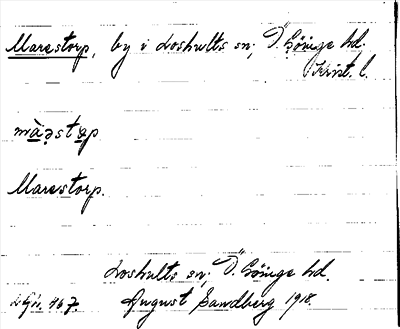 Marestorp, by i Loshults sn; Ö. Göinge hd.
Krist. l.
Marestorp.
Loshults sn; Ö. Göinge hd.
August Sandberg 1918.